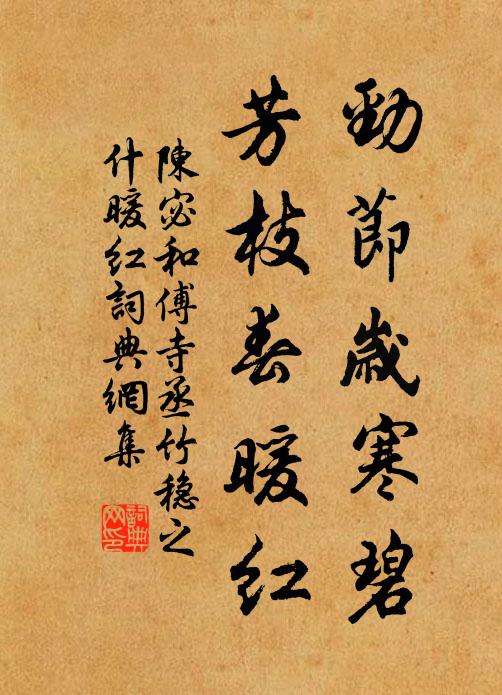 勁節歲寒碧
芳枝春暖红
陳宓和傅寺丞竹穩之
什暖红詞典網集